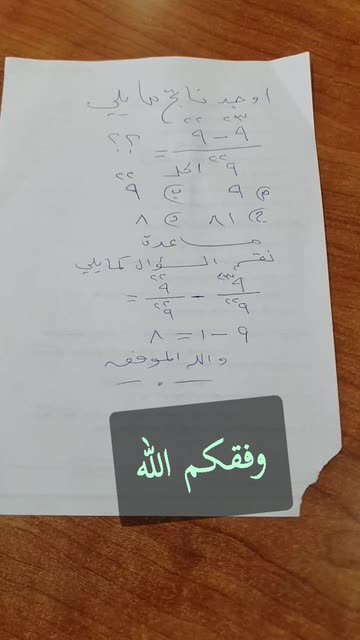 اوجد ناتج ما يلي
٩^٢٣ - ٩^٢٢ = ؟؟
٩^٢٢
الحل
م) ٩ ب) ٩^٢٢
ج) ٨١ د) ٨
مساعدة
نقسم السؤال كما يلي
٩^٢٣ - ٩^٢٢ =
٩^٢٢ ٩^٢٢
٩ - ١ = ٨
والله الموفق
وفقكم الله